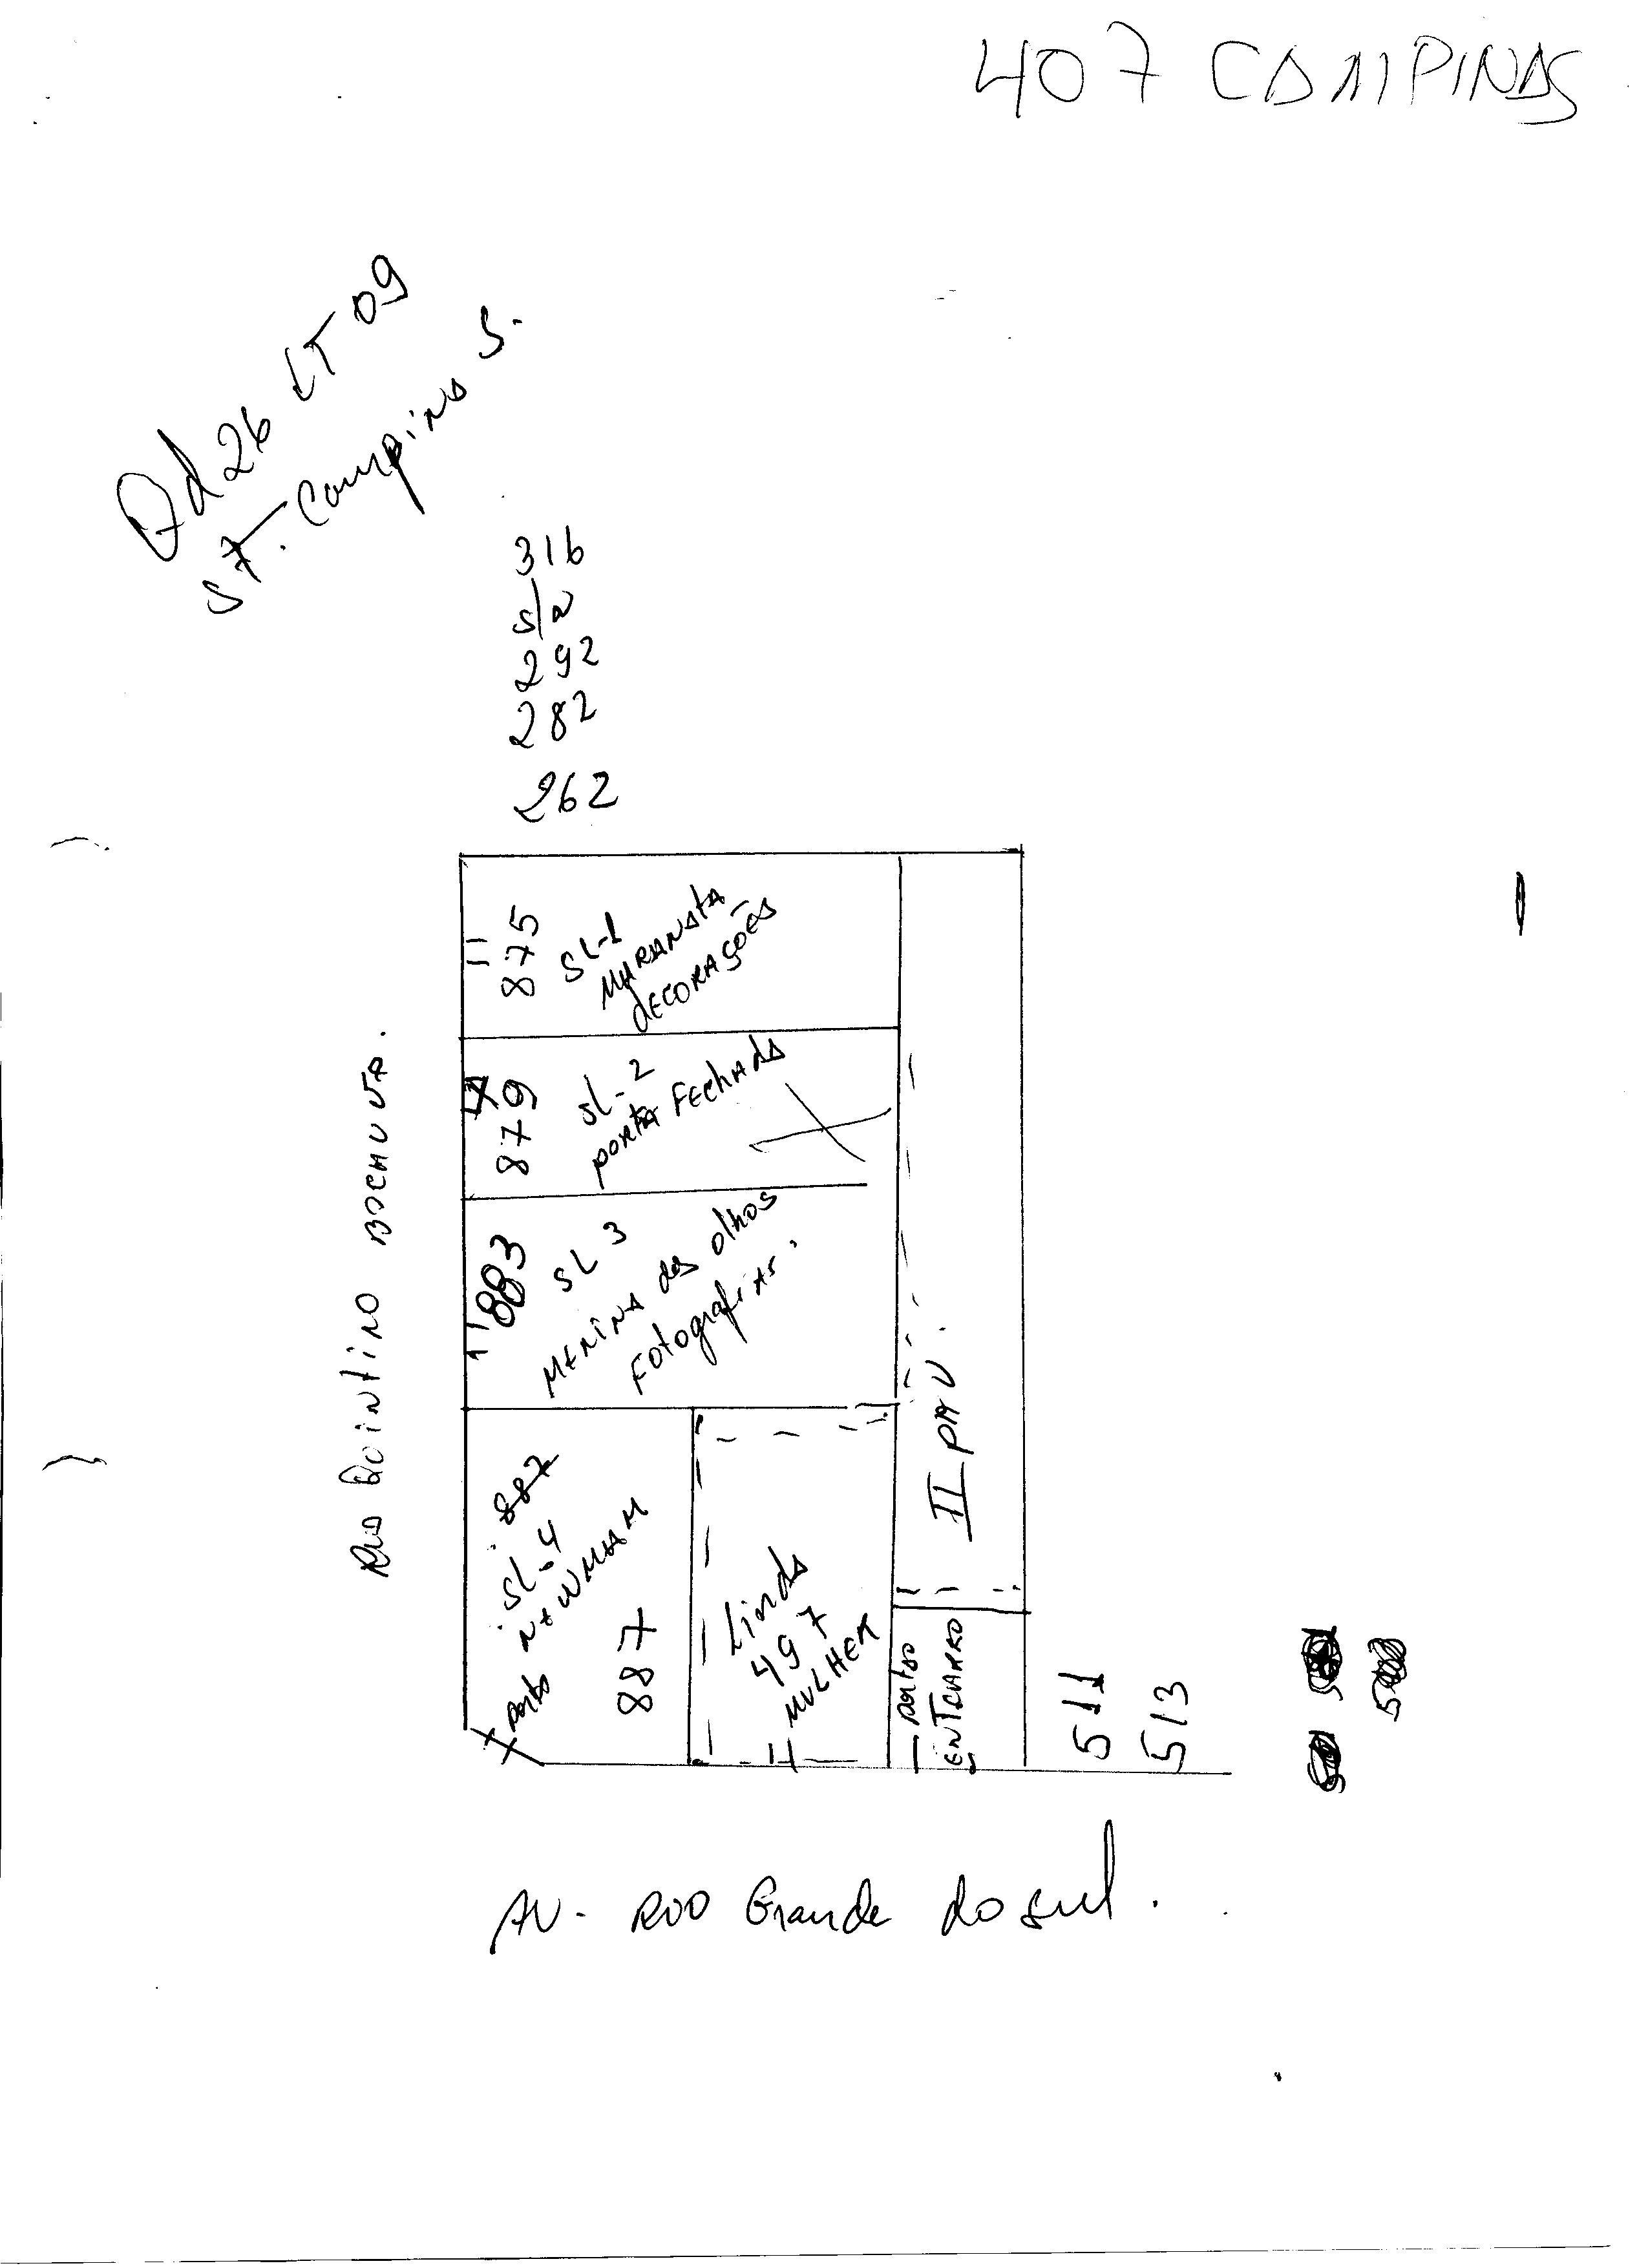 407 CAMPINAS
Qd 26 LT 09
ST. Campinas S.
316
s/n
292
282
262
875
SL-1
MARANATA
dECORAÇÕES
879
SL-2
PORTA FEchAdA
883
SL 3
MENINA dos olhos
Fotografias.
RUA Quintino BOCAIUVA.
887
SL-4
NEWMAM
porta
887
Linda
497
MULHER
II PAV.
portão
ENTCARRO
511
513
AV. RIO Grande do sul.